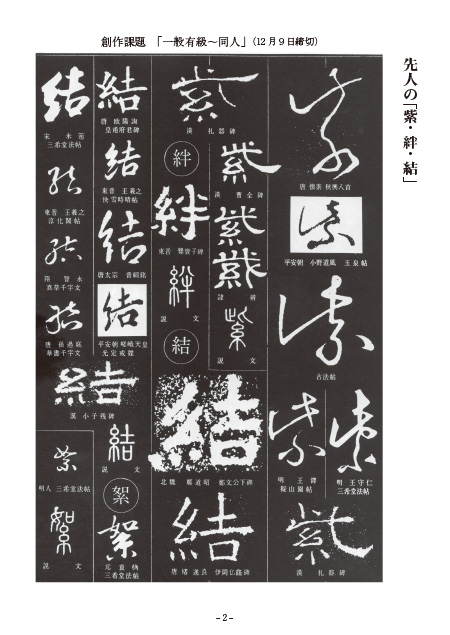 創作課題 「一般有級～同人」(12月9日締切)
先人の「紫・絆・結」
紫
唐 懐素 秋興八首
紫
平安朝 小野道風 玉泉帖
紫
古法帖
紫
明 王守仁
三希堂法帖
紫
明 王鐸
擬山園帖
紫
漢 礼器碑
紫
漢 礼器碑
紫
漢 曹全碑
紫
隷辨
紫
説文
絆
絆
東晋 爨宝子碑
絆
説文
結
結
北魏 鄭道昭 鄭文公下碑
結
唐 褚遂良 伊闕仏龕碑
結
唐 欧陽詢
皇甫府君碑
結
東晋 王羲之
快雪時晴帖
結
唐太宗 晋祠銘
結
平安朝 嵯峨天皇
光定戒牒
結
宋 米芾
三希堂法帖
結
東晋 王羲之
淳化閣帖
結
隋 智永
真草千字文
結
唐 孫過庭
草書千字文
結
漢 小子残碑
結
説文
絮
絮
元 袁桷
三希堂法帖
絮
明人 三希堂法帖
絮
説文
-2-